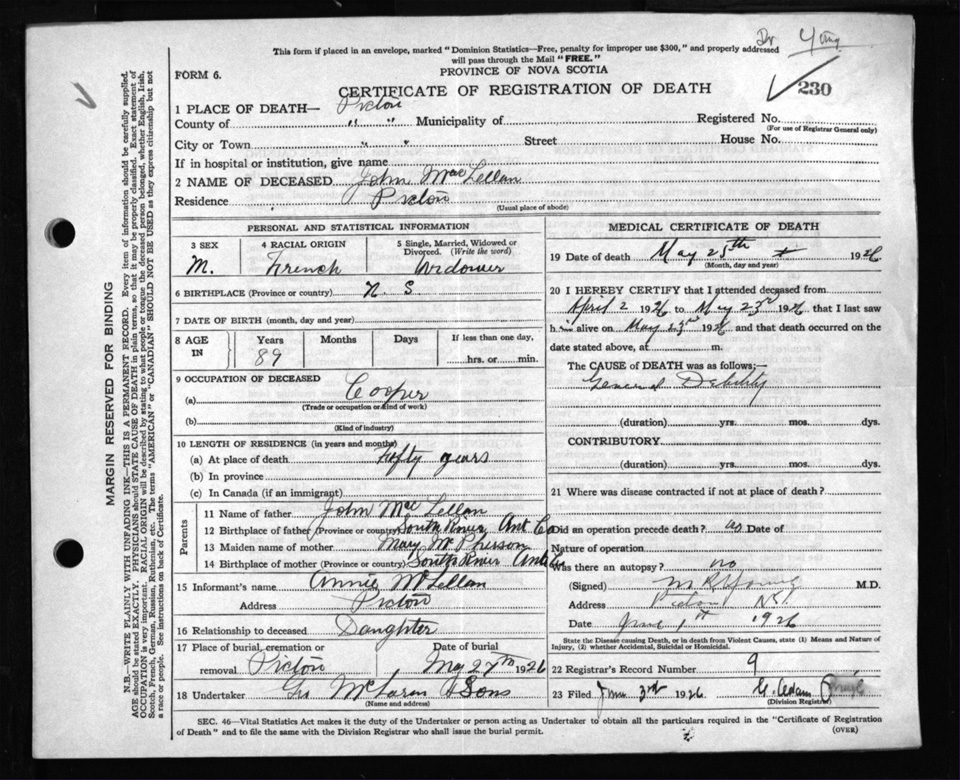 Dr Young
This form if placed in an envelope, marked "Dominion Statistics—Free, penalty for improper use $300," and properly addressed
will pass through the Mail "FREE."
FORM 6.
PROVINCE OF NOVA SCOTIA
CERTIFICATE OF REGISTRATION OF DEATH
230
1 PLACE OF DEATH— Pictou
County of " " Municipality of Registered No.
(For use of Registrar General only)
City or Town " " Street House No.
If in hospital or institution, give name
2 NAME OF DECEASED John MacLellan
Residence Pictou
(Usual place of abode)
PERSONAL AND STATISTICAL INFORMATION
3 SEX 4 RACIAL ORIGIN 5 Single, Married, Widowed or Divorced. (Write the word)
M. French Widower
6 BIRTHPLACE (Province or country) N. S.
7 DATE OF BIRTH (month, day and year)
8 AGE IN Years Months Days If less than one day,
89 hrs. or min.
9 OCCUPATION OF DECEASED
(a) Cooper
(Trade or occupation or kind of work)
(b)
(Kind of industry)
10 LENGTH OF RESIDENCE (in years and months)
(a) At place of death Fifty years
(b) In province
(c) In Canada (if an immigrant)
Parents
11 Name of father John McLellan
12 Birthplace of father (Province or country) South River Ant Co
13 Maiden name of mother Mary McPherson
14 Birthplace of mother (Province or country) South River Ant Co
15 Informant's name Annie McLellan
Address Pictou
16 Relationship to deceased Daughter
17 Place of burial, cremation or removal Pictou Date of burial May 27th 1926
18 Undertaker Geo McLaren & Sons
(Name and address)
MEDICAL CERTIFICATE OF DEATH
19 Date of death May 25th 1926
(Month, day and year)
20 I HEREBY CERTIFY that I attended deceased from
April 2 1926 to May 23rd 1926 that I last saw
him alive on May 23rd 1926 and that death occurred on the
date stated above, at m.
The CAUSE OF DEATH was as follows;—
General Debility
(duration) yrs. mos. dys.
CONTRIBUTORY
(duration) yrs. mos. dys.
21 Where was disease contracted if not at place of death?
Did an operation precede death? no Date of
Nature of operation
Was there an autopsy? no
(Signed) M R Young M.D.
Address Pictou N.S.
Date June 1st 1926
State the Disease causing Death, or in death from Violent Causes, state (1) Means and Nature of
Injury, (2) whether Accidental, Suicidal or Homicidal.
22 Registrar's Record Number 9
23 Filed June 3rd 1926 G. Adam
(Division Registrar)
SEC. 46—Vital Statistics Act makes it the duty of the Undertaker or person acting as Undertaker to obtain all the particulars required in the "Certificate of Registration
of Death" and to file the same with the Division Registrar who shall issue the burial permit.
(OVER)
MARGIN RESERVED FOR BINDING
N.B.—WRITE PLAINLY WITH UNFADING INK—THIS IS A PERMANENT RECORD. Every item of information should be carefully supplied.
AGE should be stated EXACTLY. PHYSICIANS should STATE CAUSE OF DEATH in plain terms, so that it may be properly classified. Exact statement of
OCCUPATION is very important. RACIAL ORIGIN will be described by stating to what people or tongue the deceased person belonged, whether English, Irish,
Scotch, French, German, Russian, Ruthenian, etc. The terms "AMERICAN" or "CANADIAN" SHOULD NOT BE USED as they express citizenship but not
a race or people. See instructions on back of Certificate.